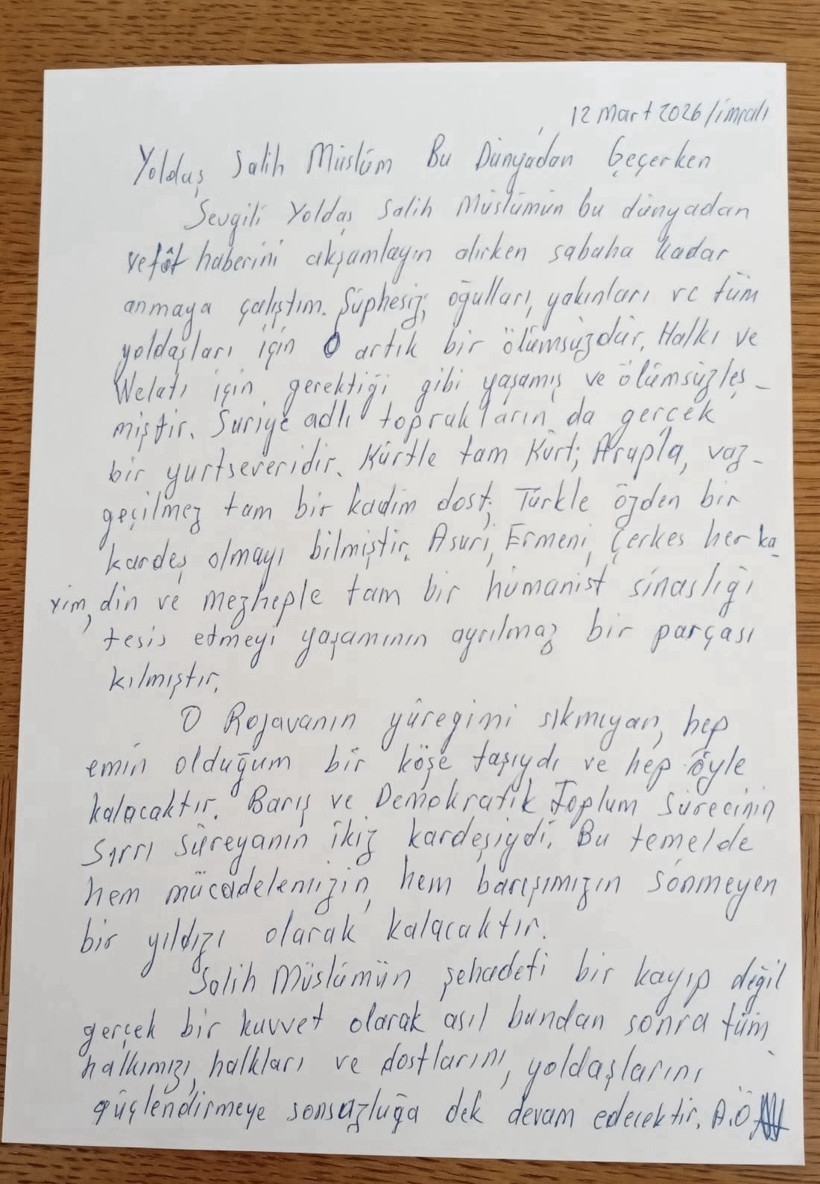 12 Mart 2026/imralı
Yoldaş Salih Müslüm Bu Dünyadan Geçerken
Sevgili Yoldaş Salih Müslümün bu dünyadan
vefât haberini akşamlayın alırken sabaha kadar
anmaya çalıştım. Şüphesiz, oğulları, yakınları ve tüm
yoldaşları için O artık bir ölümsüzdür. Halkı ve
Welatı için gerektiği gibi yaşamış ve ölümsüzleş-
miştir. Suriye adlı toprakların da gerçek
bir yurtseveridir. Kürtle tam Kürt; Arapla, vaz-
geçilmez tam bir kadim dost; Türkle özden bir
kardeş olmayı bilmiştir. Asuri, Ermeni, Çerkes her ka
vim, din ve mezheple tam bir hümanist sinaslığı
tesis etmeyi yaşamının ayrılmaz bir parçası
kılmıştır.
O Rojavanın yüreğimi sıkmıyan, hep
emin olduğum bir köşe taşıydı ve hep öyle
kalacaktır. Barış ve Demokratik Toplum Sürecinin
Sırrı Süreyanın ikiz kardeşiydi. Bu temelde
hem mücadelemizin, hem barışımızın sönmeyen
bir yıldızı olarak kalacaktır.
Salih Müslümün şehadeti bir kayıp değil
gerçek bir kuvvet olarak asıl bundan sonra tüm
halkımızı, halkları ve dostlarını, yoldaşlarını
güçlendirmeye sonsuzluğa dek devam edecektir. A.Ö